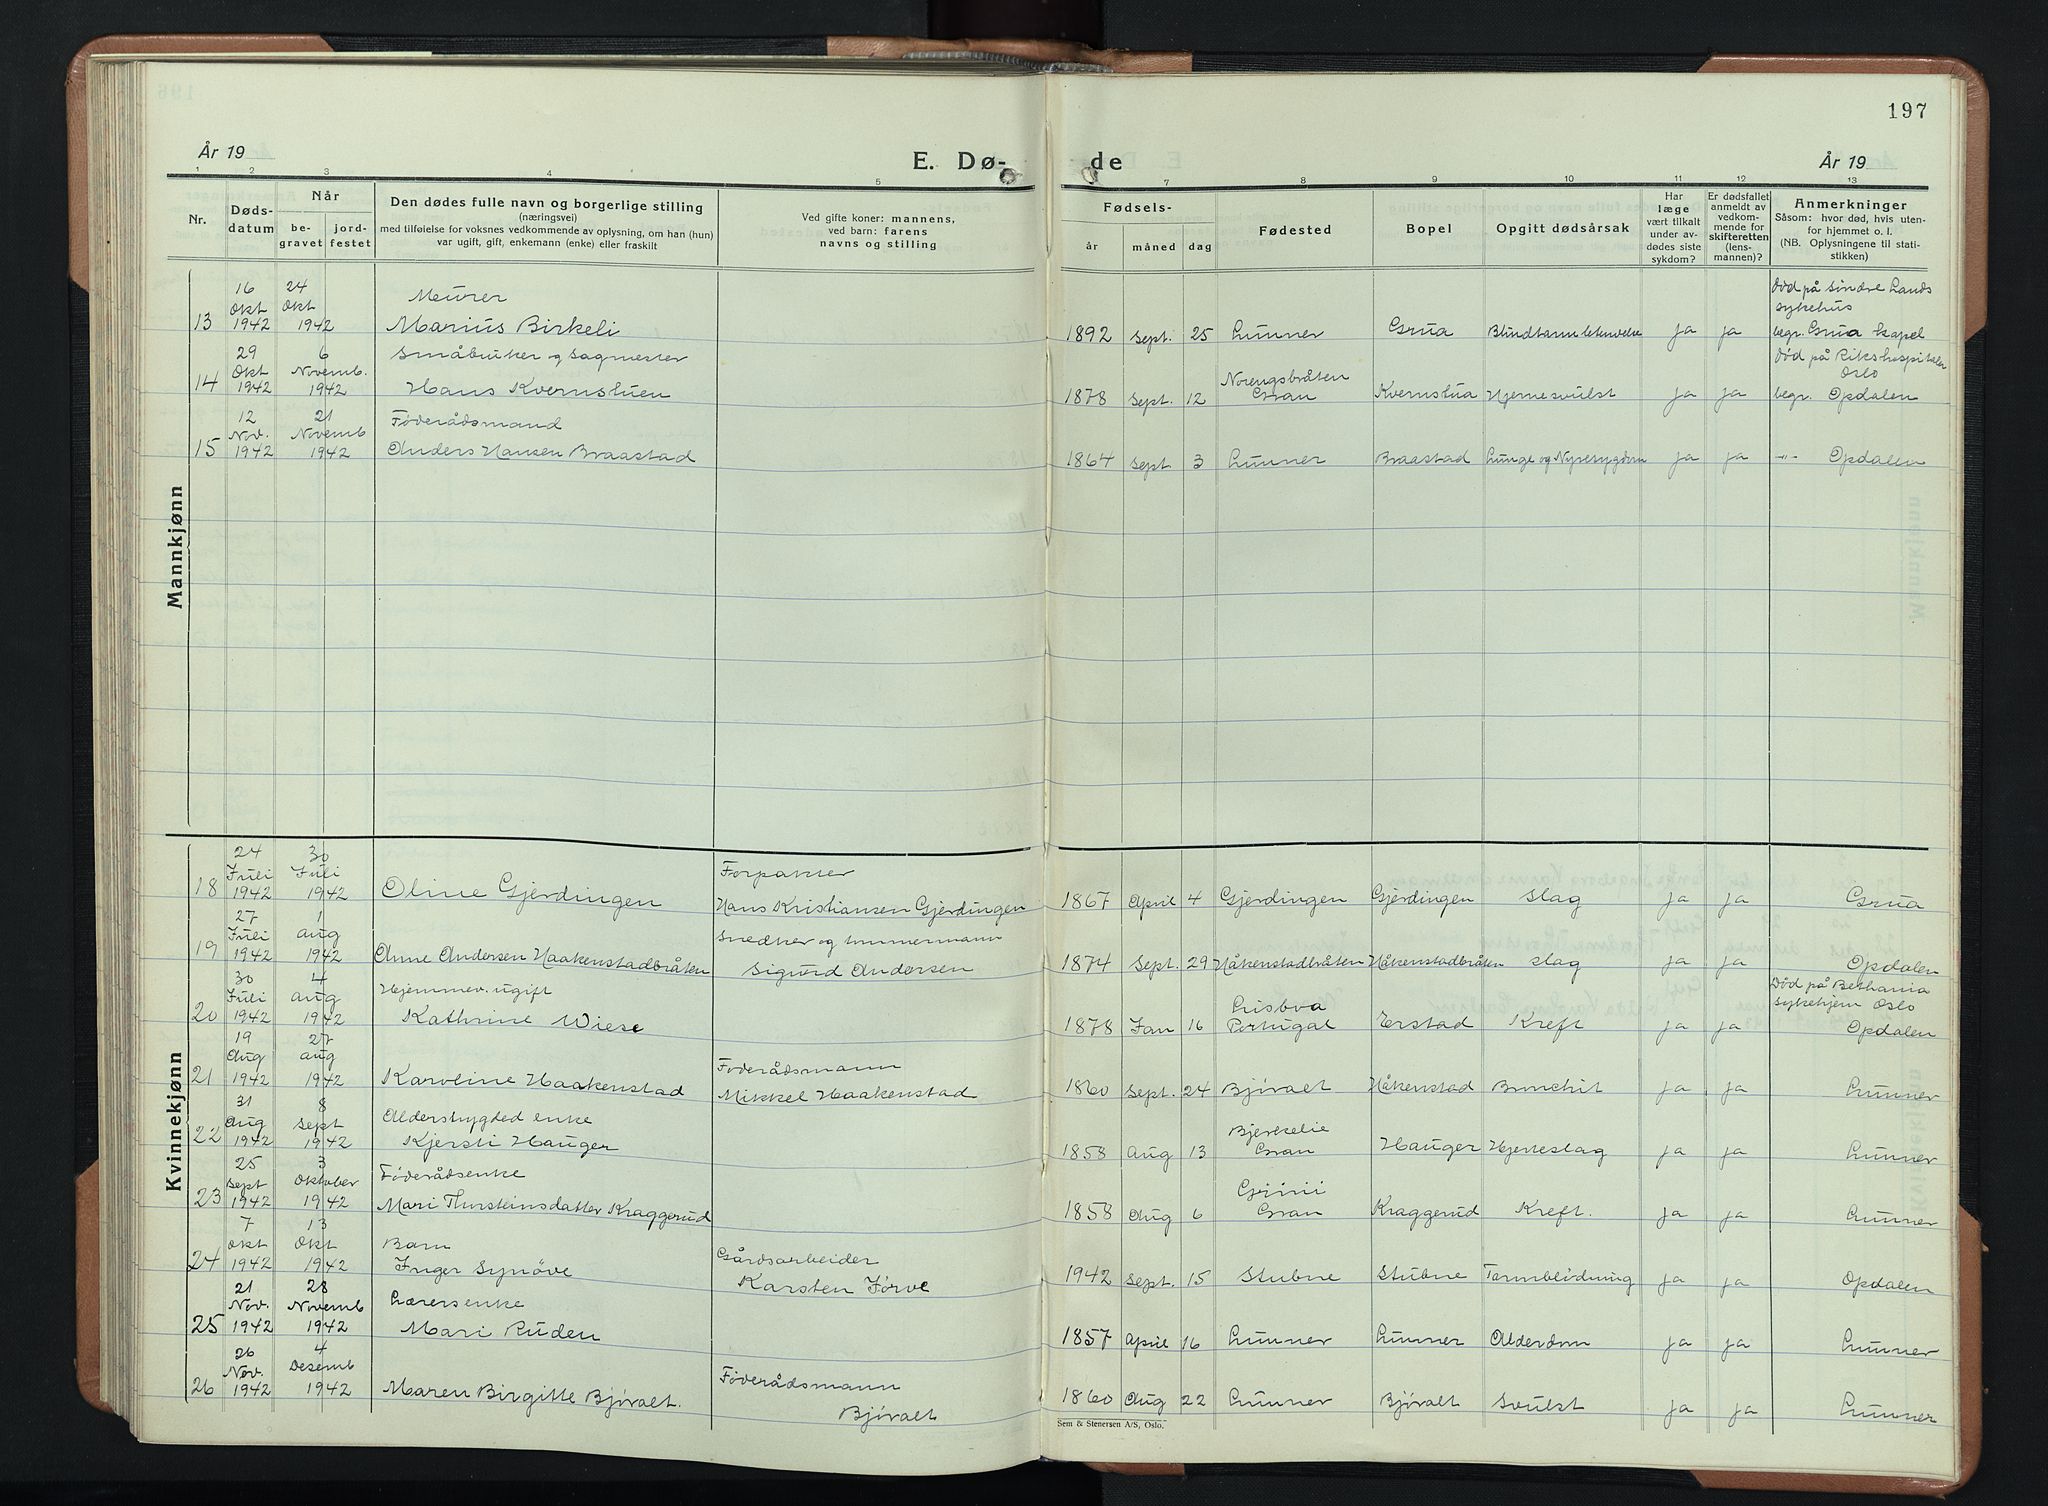 197
År 19
E. Dø-
de
År 19
1 2 3 4 5 7 8 9 10 11 12 13
Nr.
Døds-
datum
Når
be-
gravet
jord-
festet
Den dødes fulle navn og borgerlige stilling
(næringsvei)
med tilføielse for voksnes vedkommende av oplysning, om han (hun)
var ugift, gift, enkemann (enke) eller fraskilt
Ved gifte koner: mannens,
ved barn: farens
navns og stilling
Fødsels-
år måned dag
Fødested
Bopel
Opgitt dødsårsak
Har
læge
vært tilkalt
under av-
dødes siste
sykdom?
Er dødsfallet
anmeldt av
vedkom-
mende for
skifteretten
(lens-
mannen)?
Anmerkninger
Såsom: hvor død, hvis uten-
for hjemmet o. l.
(NB. Oplysningene til stati-
stikken)
Mannkjønn
16 24 død på Søndre Lands
Okt Okt Murer sykehus
13 1942 1942 Marius Birkeli 1892 Sept. 25 Lunner Grua Blindtarmbetennelse ja ja begr. Grua kapel
29 6 Småbruker og Sagmester død på Rikshospitalet
Okt Novemb. Norengsbråten Oslo
14 1942 1942 Hans Kvernstuen 1878 Sept. 12 Gran Kvernstua Hjernesvulst ja ja begr. Opdalen
12 21 Føderådsmand
Nov. Novemb
15 1942 1942 Anders Hansen Braastad 1864 Sept 3 Lunner Braastad Lunge og Nyresygdom ja ja -"- Opdalen
Kvinnekjønn
24 30
Juli Juli Forpakter
18 1942 1942 Oline Gjerdingen Hans Kristiansen Gjerdingen 1867 April 4 Gjerdingen Gjerdingen Slag ja ja Grua
27 1
Juli aug Snedker og tømmermann
19 1942 1942 Anne Andersen Haakenstadbråten Sigurd Andersen 1874 Sept. 29 Håkenstadbråten Håkenstadbråten Slag ja ja Opdalen
30 4 Hjemmev. ugift Død på Bethania
Juli aug Lisboa sykehjem Oslo
20 1942 1942 Kathrine Wiese 1878 Jan 16 Portugal Erstad Kreft ja ja Opdalen
19 27
Aug aug Føderådsmann
21 1942 1942 Karoline Haakenstad Mikkel Haakenstad 1860 Sept. 24 Bjøralt Håkenstad Bronchit ja ja Lunner
31 8
Aug Sept Alderstrygded enke Bjerkelie
22 1942 1942 Kjersti Hauger 1858 Aug 13 Gran Hauger Hjerteslag ja ja Lunner
25 3
Sept Oktober Føderådsenke Grinii
23 1942 1942 Mari Thorsteinsdatter Kraggerud 1858 Aug 6 Gran Kraggerud Kreft. ja ja Lunner
7 13
Okt Okt Barn Gårdsarbeider
24 1942 1942 Inger Synöve Karsten Jörve 1942 Sept. 15 Stubne Stubne Tarmblødning ja ja Opdalen
21 28
Nov. Novemb Lærersenke
25 1942 1942 Mari Ruden 1857 April 16 Lunner Lunner Alderdom ja ja Lunner
26 4
Nov. Desemb Føderådsmann
26 1942 1942 Maren Birgitte Bjøralt. Bjøralt 1860 Aug 22 Lunner Bjøralt Svulst ja ja Lunner
Sem & Stenersen A/S, Oslo.